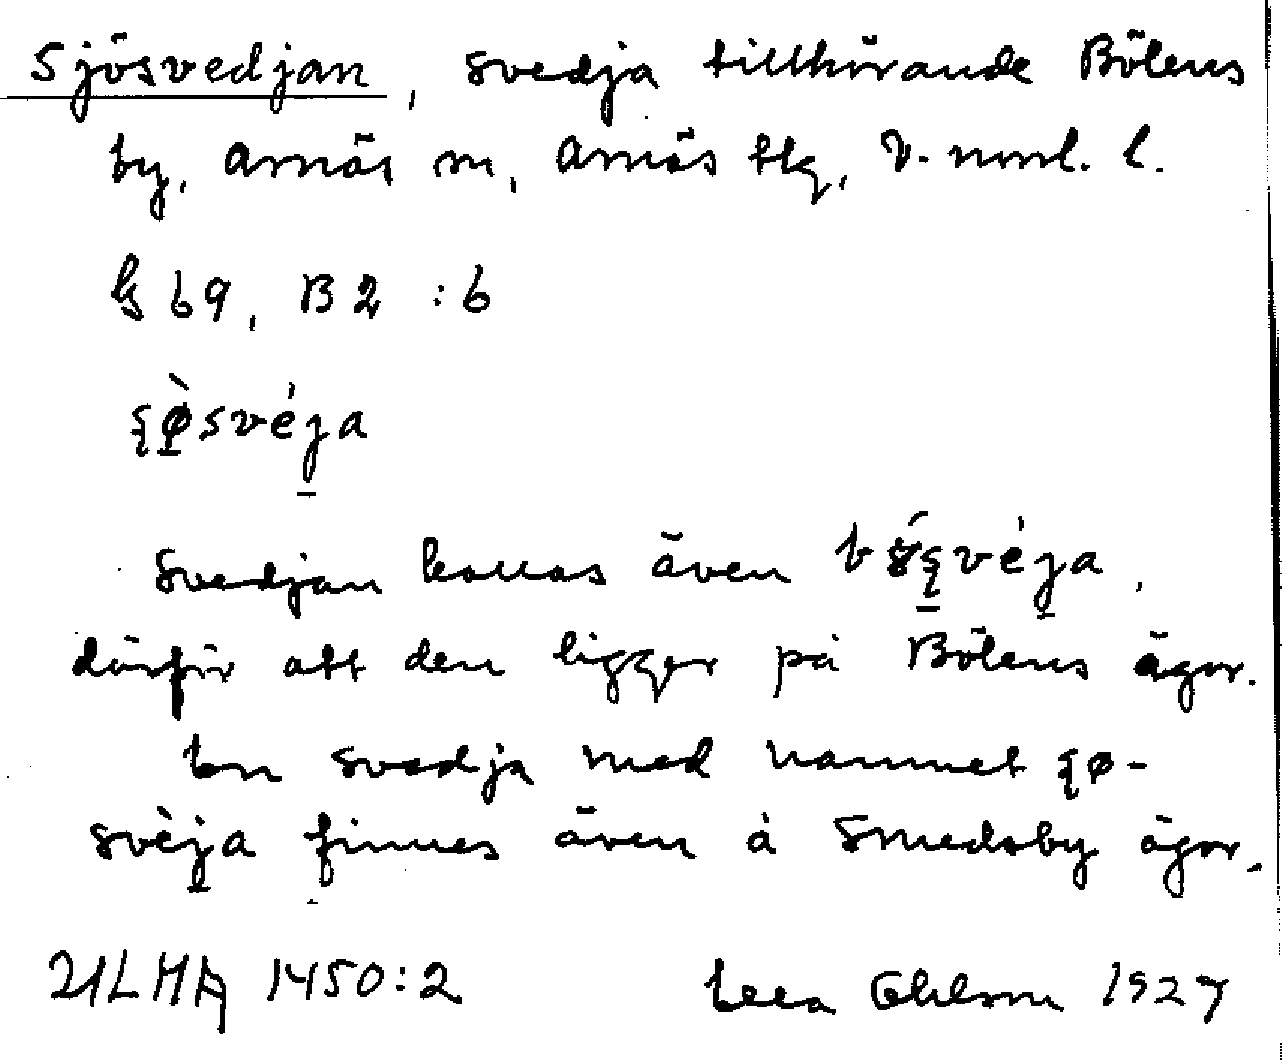 Sjösvedjan, svedja tillhörande Bölens
by, Arnäs sn, Arnäs tlg, V. norrl. l.
G 69, B 2 :6
svéja
Svedjan kallas även
därför att den ligger på Bölens ägor.
En svedja med namnet
svèja finnes även å Smedsby ägor.
ULMA 1450:2 Ella Ohlson 1927